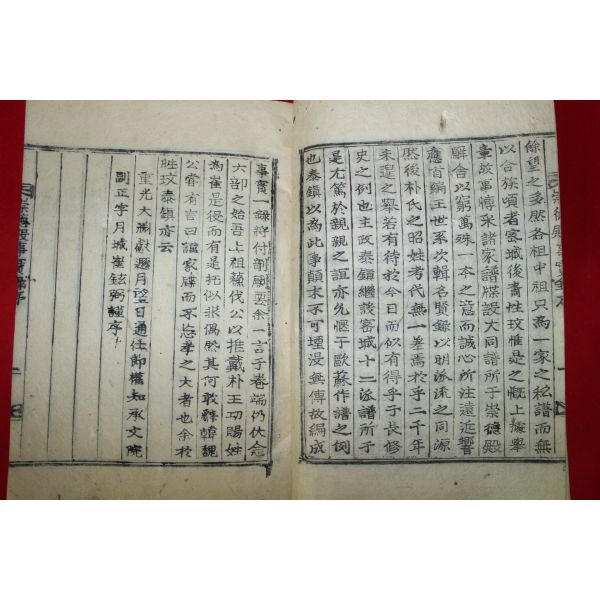 餘望之多歷各祖中祖只為一家之私譜而無
以合族頃者密城後裔性玟惟是之慨上據舉
章故事博采諸家譜牒設大同譜所于崇德殿
齋舍以第萬殊一本之意而誠心所注遠近響
應首編王世系次輯名賢錄以明派流之同源
然後朴氏之昭姓考代無一差焉於乎二千年
未遑之擧若有待於今日而似有得乎子長修
史之例也主政泰鎭繼設密城十二派譜所于
是尤篤於親親之誼亦允愜于歐蘇作譜之例
也泰鎭以為此事顚末不可堙沒無傳故編成
事實一錄將付剞劂要余一言于卷端仍伏念
六部之始吾上祖蘇伐公以推戴朴王功賜姓
為崔是役而有是托似非偶然其何敢辭韓魏
公嘗有言曰謹家牒而不忘孝之大者也余於
性玟泰鎭亦云
重光大淵獻 月 日通仕郞權知承文院
副正字月城崔鉉弼謹序
崇德殿事實錄序